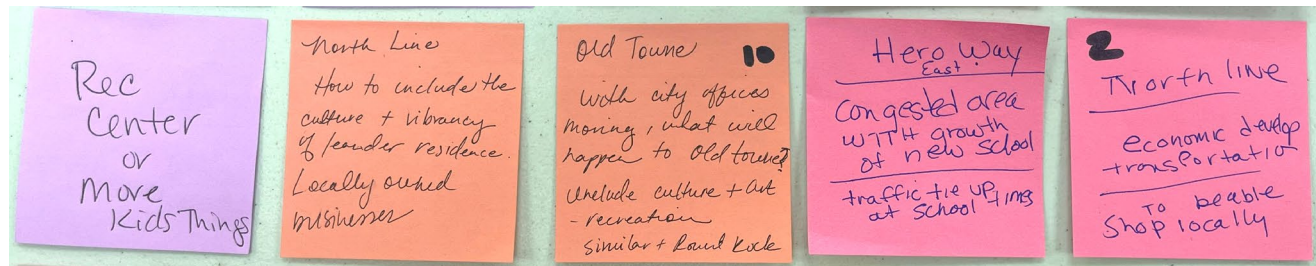 Rec
Center
or
More
Kids Things
North Line
How to include the
culture + vibrancy
of leander residence.
Locally owned
businesses
Old Towne 10
With city offices
moving, what will
happen to old towne?
include culture + art
- recreation
similar + Round Rock
Hero Way
East
Congested area
WITH growth
of new school
traffic tie up
at school times
2
North line
economic develop
transportatio
To beable
Shop locally